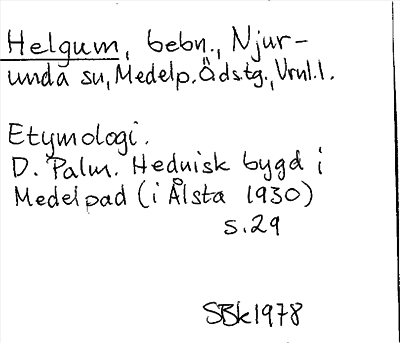 Helgum, bebn., Njur-
unda sn, Medelp. Ådstg., Vrnl.l.
Etymologi.
D. Palm. Hednisk bygd i
Medelpad (i Ålsta 1930)
s.29
SBk1978